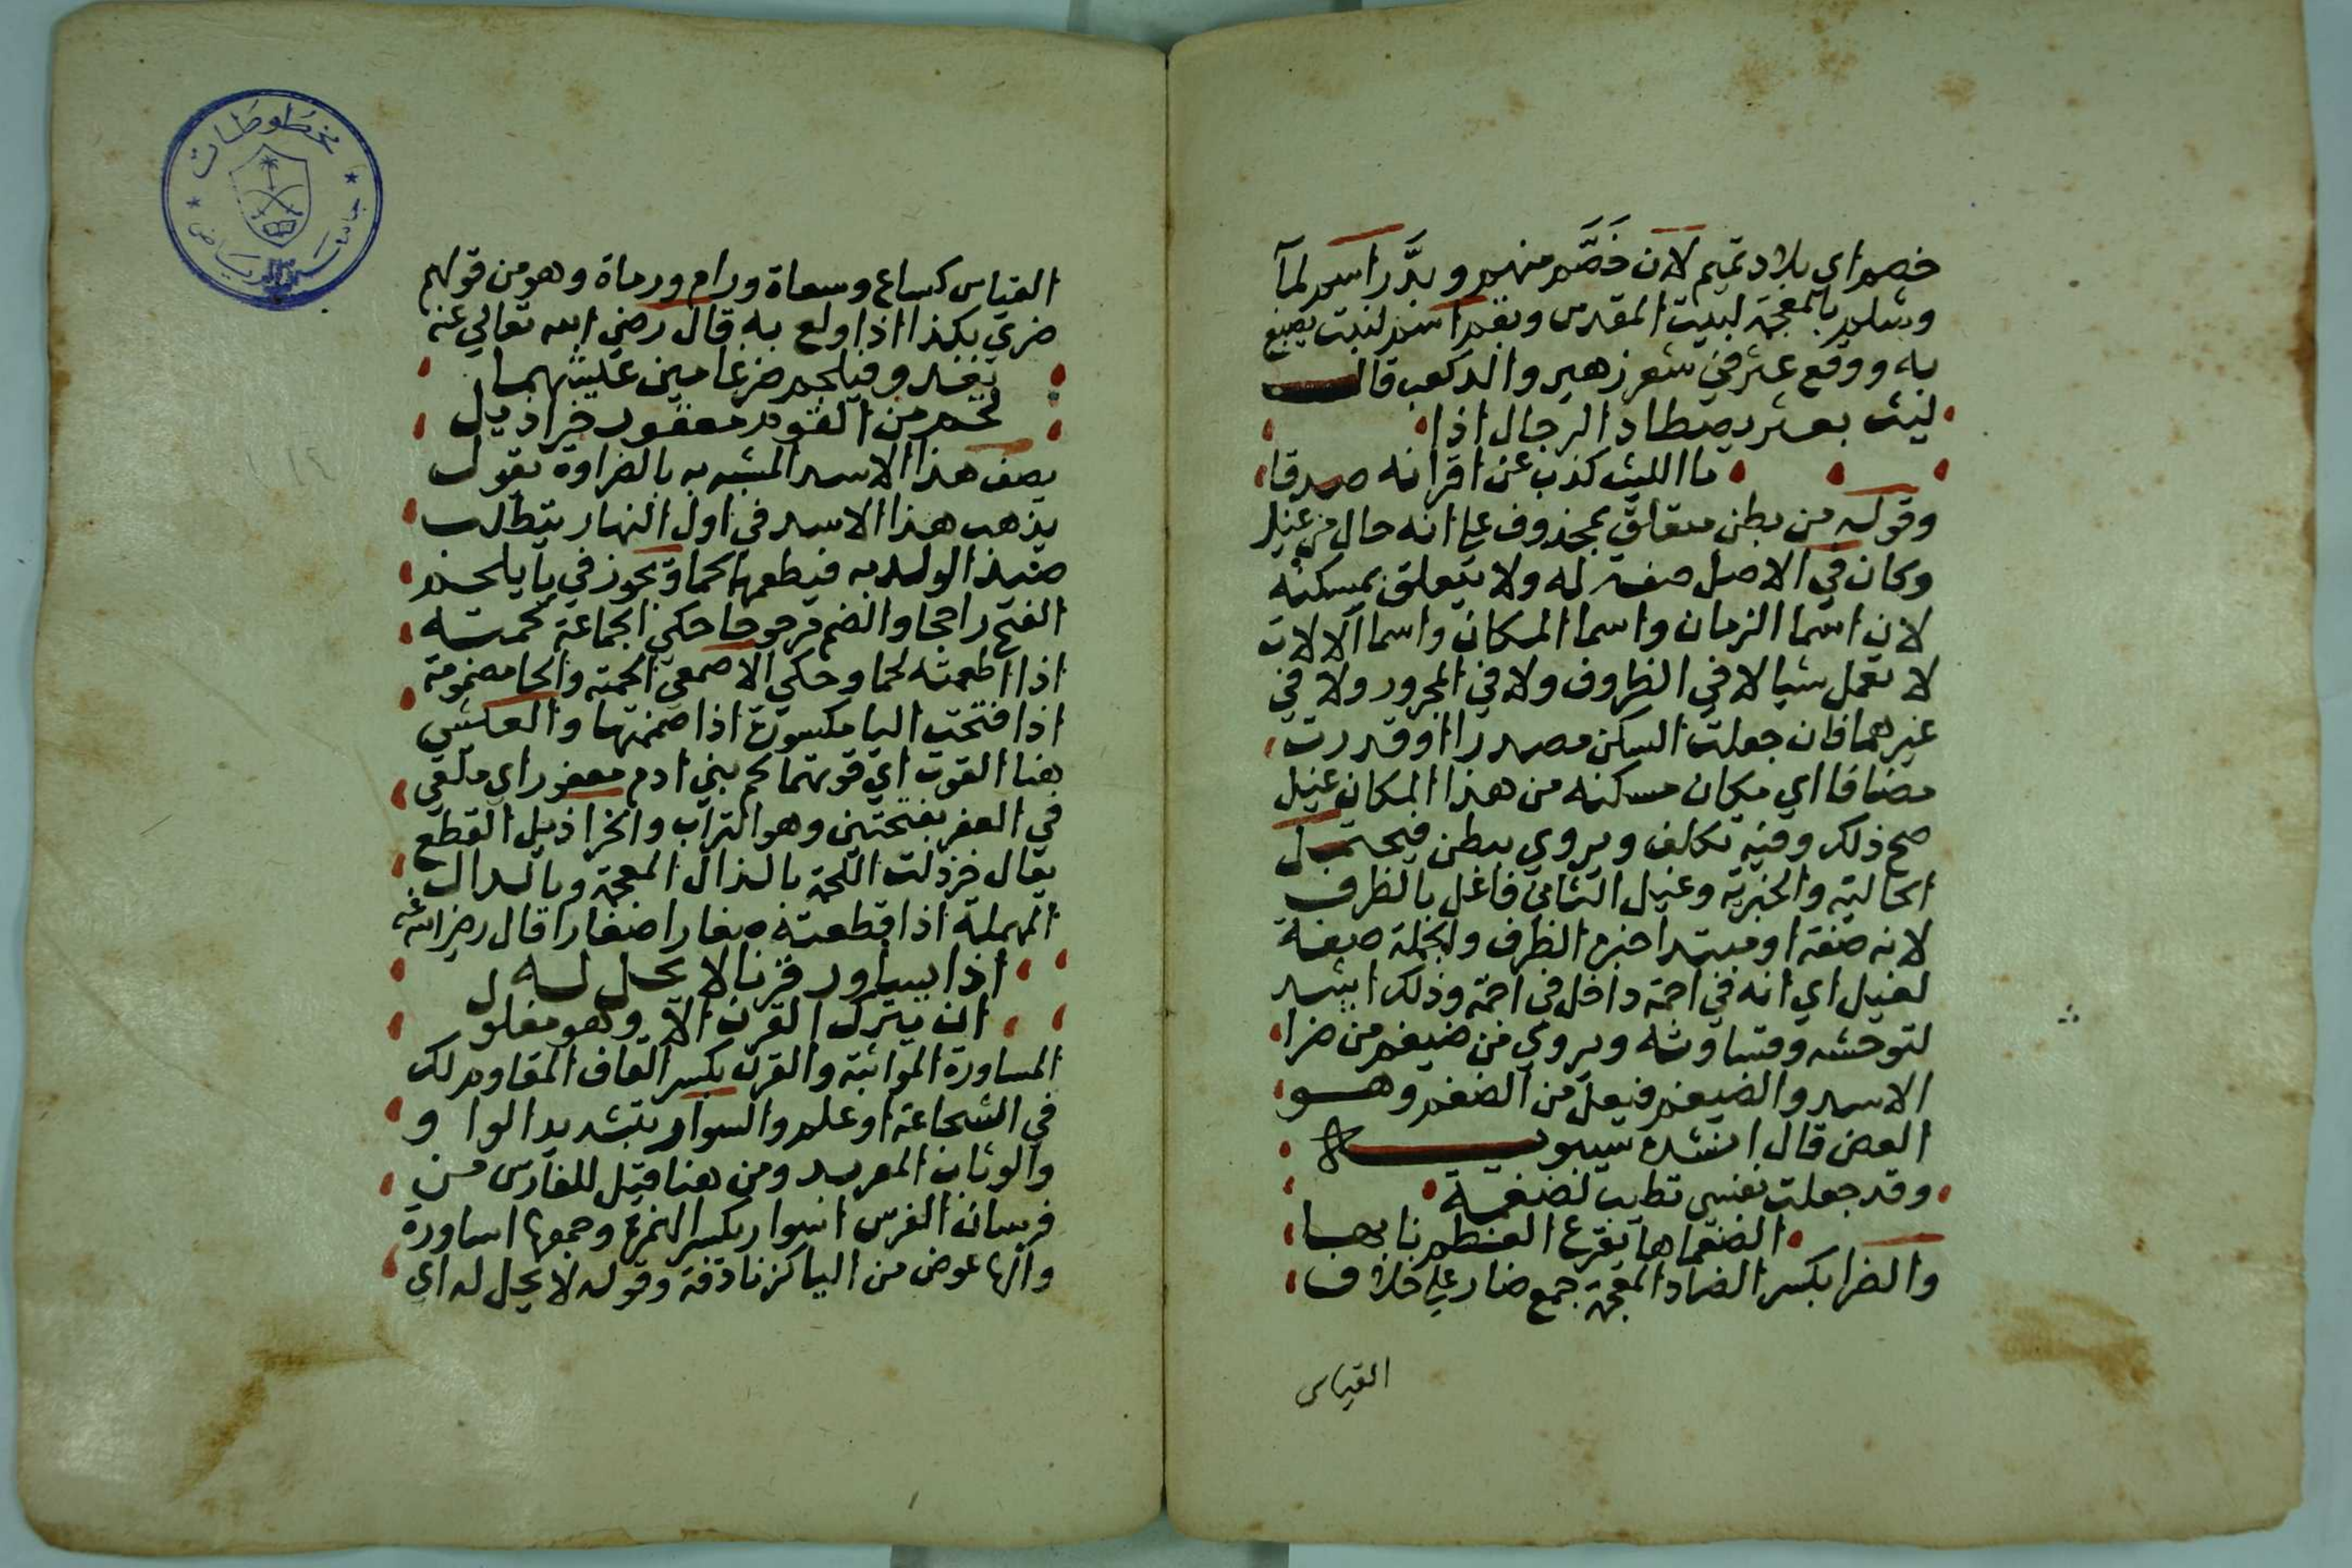 خصم اي بلاد تميم لان خَضَّم منهم و بدَّر اسم لمآ
وشلم بالمعجمة لبيت المقدس وبقم اسم لنبت يصبغ
به ووقع عثر في شعر زهير والد كعب قال
ليث بعثر يصطاد الرجال اذا
ما الليث كذب عن اقرانه صدقا
وقوله من بطن متعلق بمحذوف علي انه حال من غيل
وكان في الاصل صفة له ولا يتعلق بمسكنه
لان اسما الزمان واسما المكان واسما الالات
لا تعمل شيا لا في الظروف ولا في المجرور ولا في
غيرهما فان جعلت السكن مصدرا او قدرت
مضافا اي مكان مسكنه من هذا المكان غيل
صح ذلك وفيه تكلف ويروي ببطن فيحتمل
الحالية والخبرية وغيل الثاني فاعل بالظرف
لانه صفة او مبتدا خبره الظرف والجملة صفة
لغيل اي انه في اجمة داخل في اجمة وذلك اشد
لتوحشه وقساوته ويروي من ضيغم من ضرا
الاسد والضيغم فيعل من الضغم وهو
العض قال انشده سيبويه
وقد جعلت نفسي تطيب لضغمة
الضغماها يقرع العظم نابها
والضرا بكسر الضاد المعجمة جمع ضار علي خلاف
القياس
القياس كساع وسعاة ورام ورماة وهو من قولهم
ضري بكذا اذا ولع به قال رضي الله تعالي عنه
يغدو فيلحم ضرغامين عيشهما
لحم من القوم معفور خراذيل
يصف هذا الاسد المشبه به بالضراوة يقول
يذهب هذا الاسد في اول النهار يتطلب
صيدا لولديه فيطعمهما لحما ويجوز في يا يلحم
الفتح راجحا والضم مرجوحا حكي الجماعة لحمته
اذا اطعمته لحما وحكي الاصمعي الحمته والحا مضمومة
اذا فتحت اليا مكسورة اذا ضممتها والعيش
هنا القوت اي قوتهما لحم بني ادم معفور اي ملقي
في العفر بفتحتين وهو التراب والخراذيل القطع
يقال خرذلت اللحم بالذال المعجمة وبالدال
المهملة اذا قطعته صغارا صغارا قال رضي الله عنه
اذا يساور قرنا لا يحل له
ان يترك القرن الا وهو مفلول
المساورة المواثبة والقرن بكسر القاف المقاوم لك
في الشجاعة او علم والسوار بتشديد الواو
والوثاب المعربد ومن هنا قيل للفارس من
فرسان الفرس اسوار بكسر الهمزة وجمعها اساورة
والها عوض من اليا كزنادقة وقوله لا يحل له اي
مخطوطات
جامعة الرياض